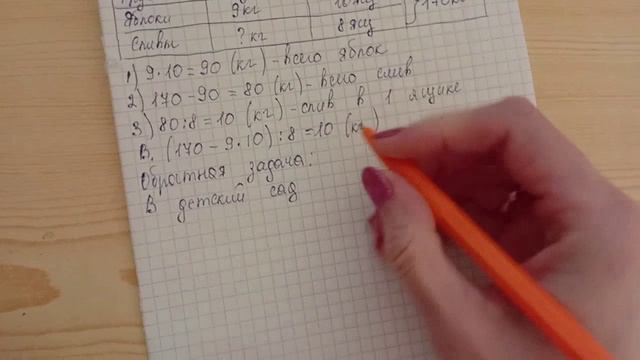 Яблоки 9 кг 10 ящ 170 кг
Сливы ? кг 8 ящ
1) 9·10=90 (кг) - всего яблок
2) 170-90=80 (кг) - всего слив
3) 80:8=10 (кг) - слив в 1 ящике
В. (170-9·10):8=10 (кг)
Обратная задача:
В детский сад